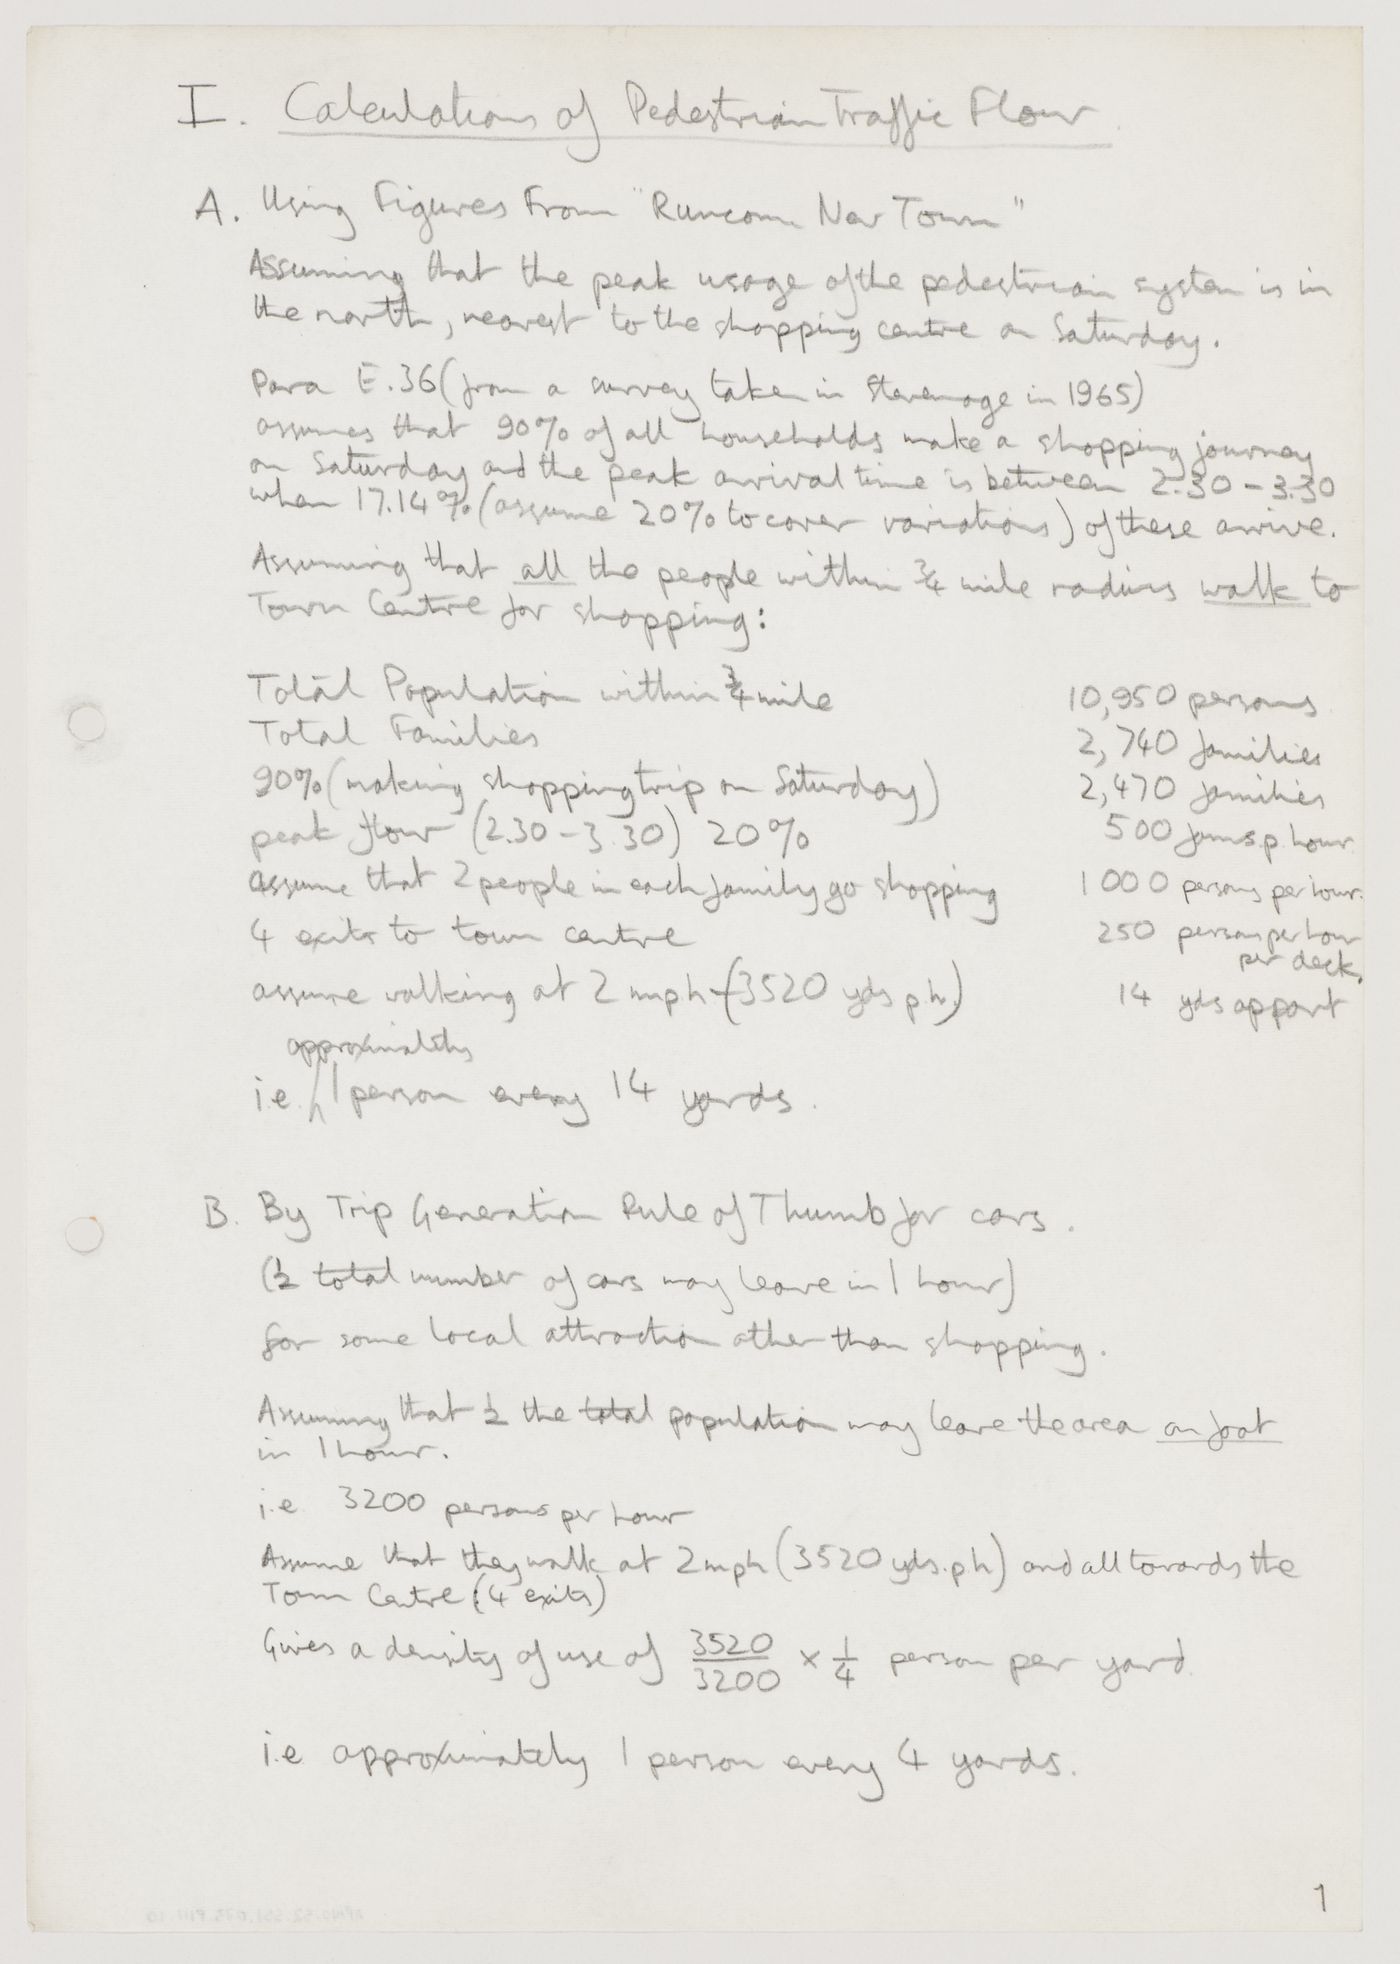 I. Calculations of Pedestrian Traffic Flow
A. Using Figures From "Runcorn New Town"
Assuming that the peak usage of the pedestrian system is in
the north, nearest to the shopping centre on Saturday.
Para E.36 (from a survey taken in Stevenage in 1965)
assumes that 90% of all households make a shopping journey
on Saturday and the peak arrival time is between 2.30 - 3.30
when 17.14% (assume 20% to cover variations) of these arrive.
Assuming that all the people within ¾ mile radius walk to
Town Centre for shopping:
Total Population within ¾ mile 10,950 persons
Total Families 2,740 families
90% (making shopping trip on Saturday) 2,470 families
peak flow (2.30 - 3.30) 20% 500 fams.p. hour
assume that 2 people in each family go shopping 1000 persons per hour.
4 exits to town centre 250 persons per hour
per deck,
assume walking at 2 mph - (3520 yds p h.) 14 yds appart
approximately
i.e. 1 person every 14 yards.
B. By Trip Generation Rule of Thumb for cars.
(½ total number of cars may leave in 1 hour)
for some local attraction other than shopping.
Assuming that ½ the total population may leave the area on foot
in 1 hour.
i.e 3200 persons per hour
Assume that they walk at 2 mph (3520 yds. p h) and all towards the
Town Centre (4 exits)
Gives a density of use of 3520/3200 × 1/4 person per yard.
i.e approximately 1 person every 4 yards.
1